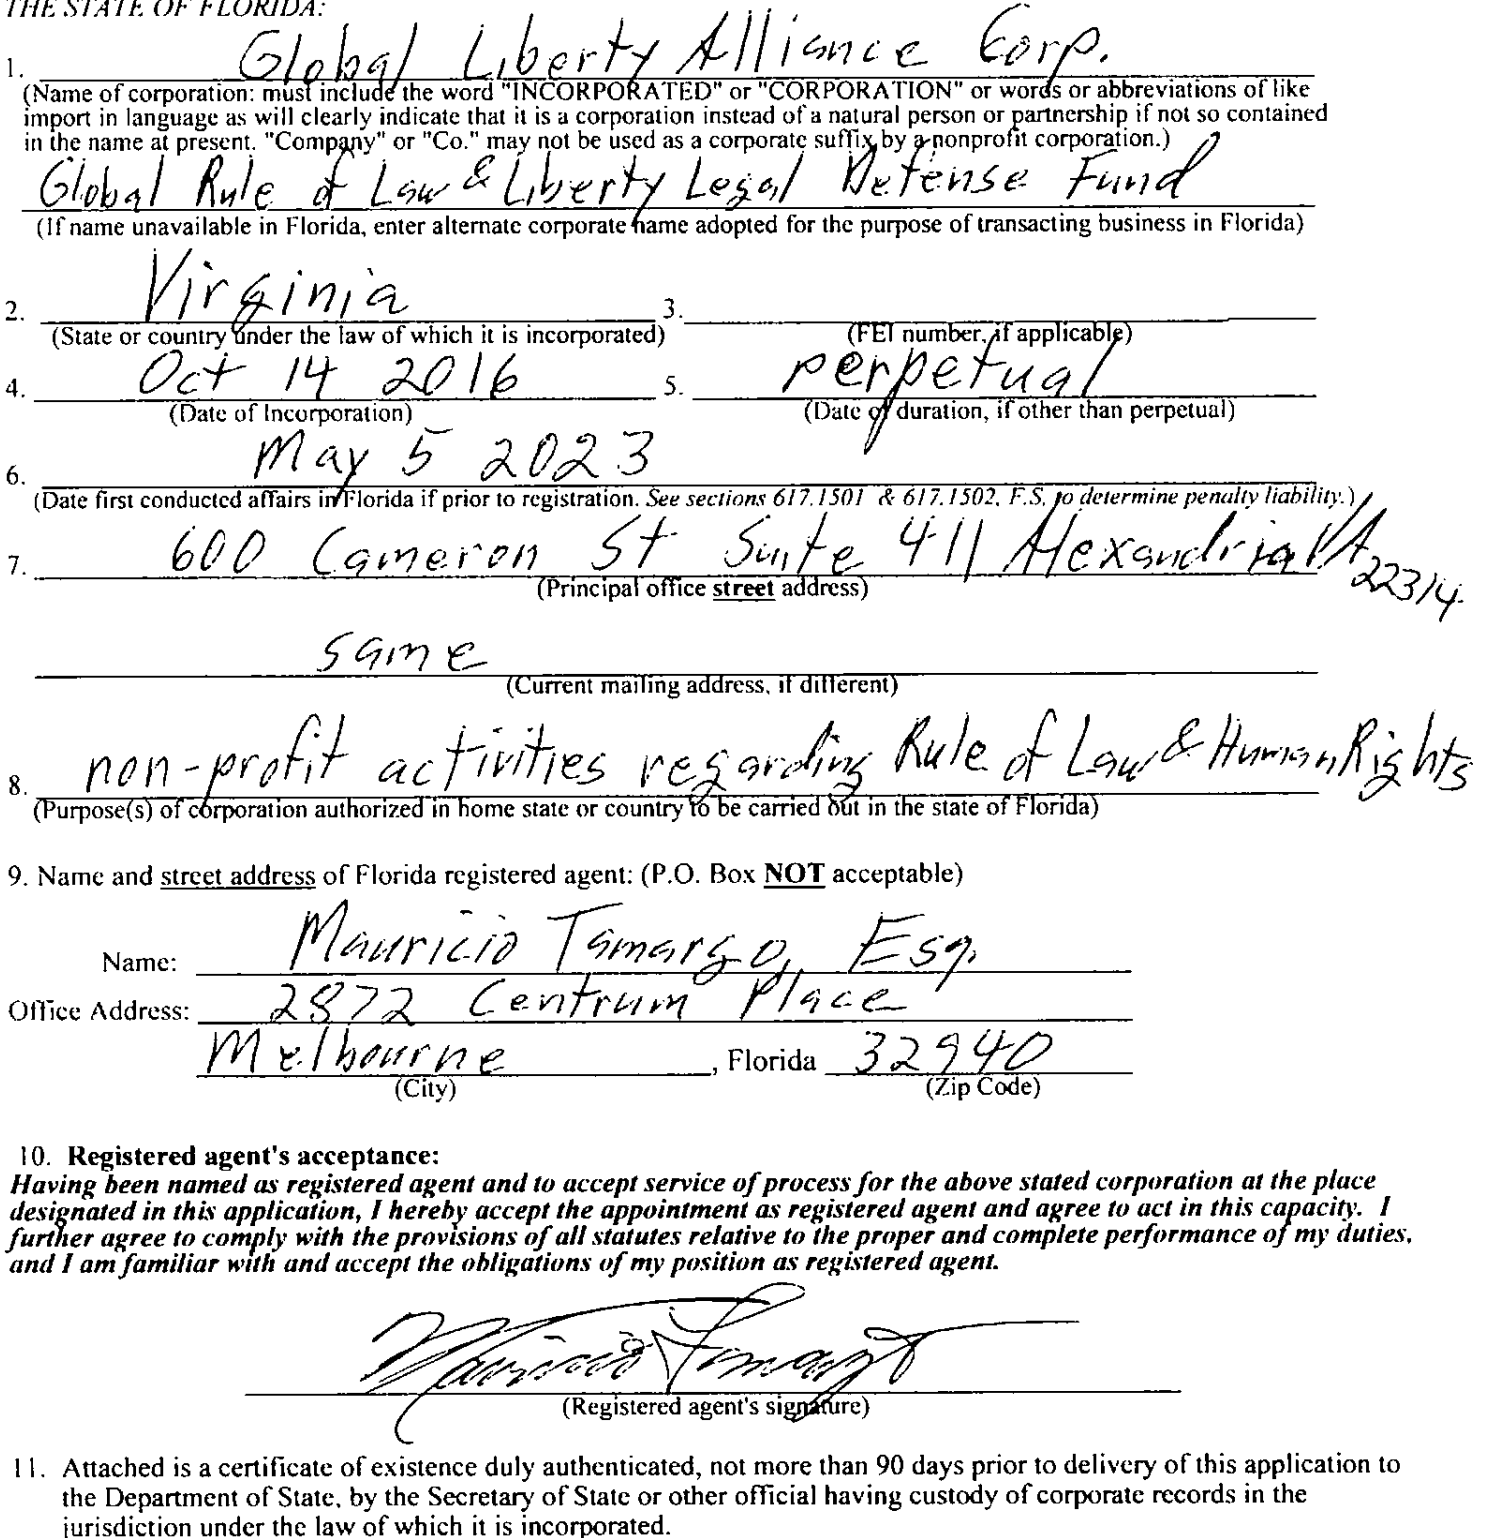 THE STATE OF FLORIDA:
1. Global Liberty Alliance Corp.
(Name of corporation: must include the word "INCORPORATED" or "CORPORATION" or words or abbreviations of like
import in language as will clearly indicate that it is a corporation instead of a natural person or partnership if not so contained
in the name at present. "Company" or "Co." may not be used as a corporate suffix by a nonprofit corporation.)
Global Rule of Law & Liberty Legal Defense Fund
(If name unavailable in Florida, enter alternate corporate name adopted for the purpose of transacting business in Florida)
2. Virginia 3.
(State or country under the law of which it is incorporated) (FEI number, if applicable)
4. Oct 14 2016 5. perpetual
(Date of Incorporation) (Date of duration, if other than perpetual)
6. May 5 2023
(Date first conducted affairs in Florida if prior to registration. See sections 617.1501 & 617.1502, F.S. to determine penalty liability.)
7. 600 Cameron St Suite 411 Alexandria VA 22314
(Principal office street address)
same
(Current mailing address, if different)
8. non-profit activities regarding Rule of Law & Human Rights
(Purpose(s) of corporation authorized in home state or country to be carried out in the state of Florida)
9. Name and street address of Florida registered agent: (P.O. Box NOT acceptable)
Name: Mauricio Tamargo, Esq.
Office Address: 2872 Centrum Place
Melbourne, Florida 32940
(City) (Zip Code)
10. Registered agent's acceptance:
Having been named as registered agent and to accept service of process for the above stated corporation at the place
designated in this application, I hereby accept the appointment as registered agent and agree to act in this capacity. I
further agree to comply with the provisions of all statutes relative to the proper and complete performance of my duties,
and I am familiar with and accept the obligations of my position as registered agent.
Mauricio Tamargo
(Registered agent's signature)
11. Attached is a certificate of existence duly authenticated, not more than 90 days prior to delivery of this application to
the Department of State, by the Secretary of State or other official having custody of corporate records in the
jurisdiction under the law of which it is incorporated.